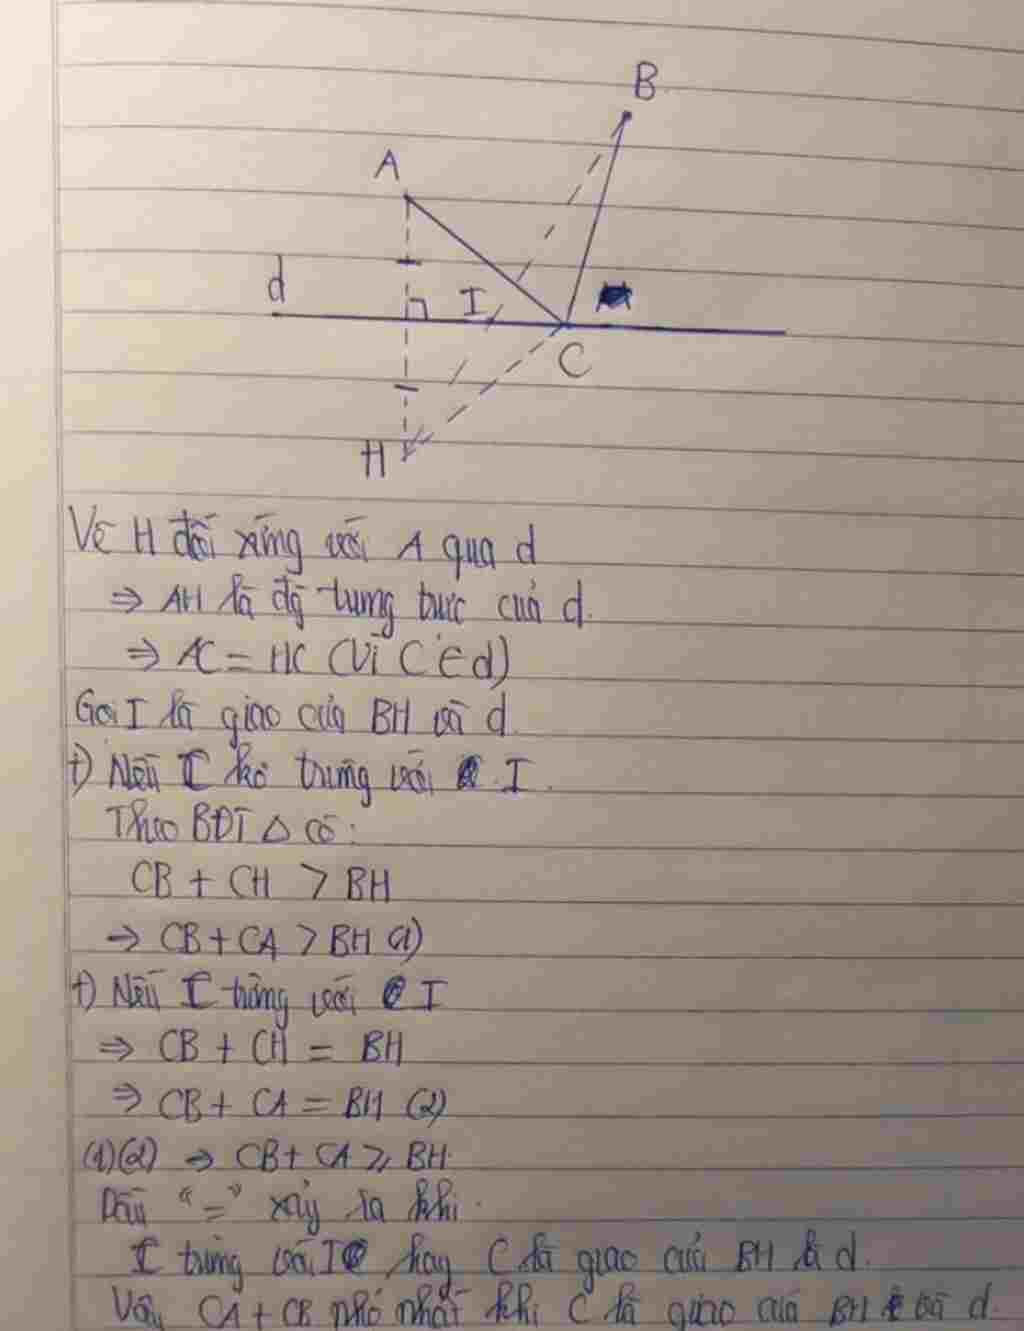 B
A
d
I
C
H
Vẽ H đối xứng với A qua d
⇒ AH là độ trung trực của d.
⇒ AC = HC (Vì C ∈ d)
Gọi I là giao của BH và d
+) Nếu C ko trùng với I.
Theo BĐT Δ có:
CB + CH > BH
⇒ CB + CA > BH (1)
+) Nếu C trùng với I
⇒ CB + CH = BH
⇒ CB + CA = BH (2)
(1)(2) ⇒ CB + CA ⩾ BH
Dấu "=" xảy ra khi
C trùng với I hay C là giao của BH là d.
Vậy CA + CB nhỏ nhất khi C là giao của BH và d.